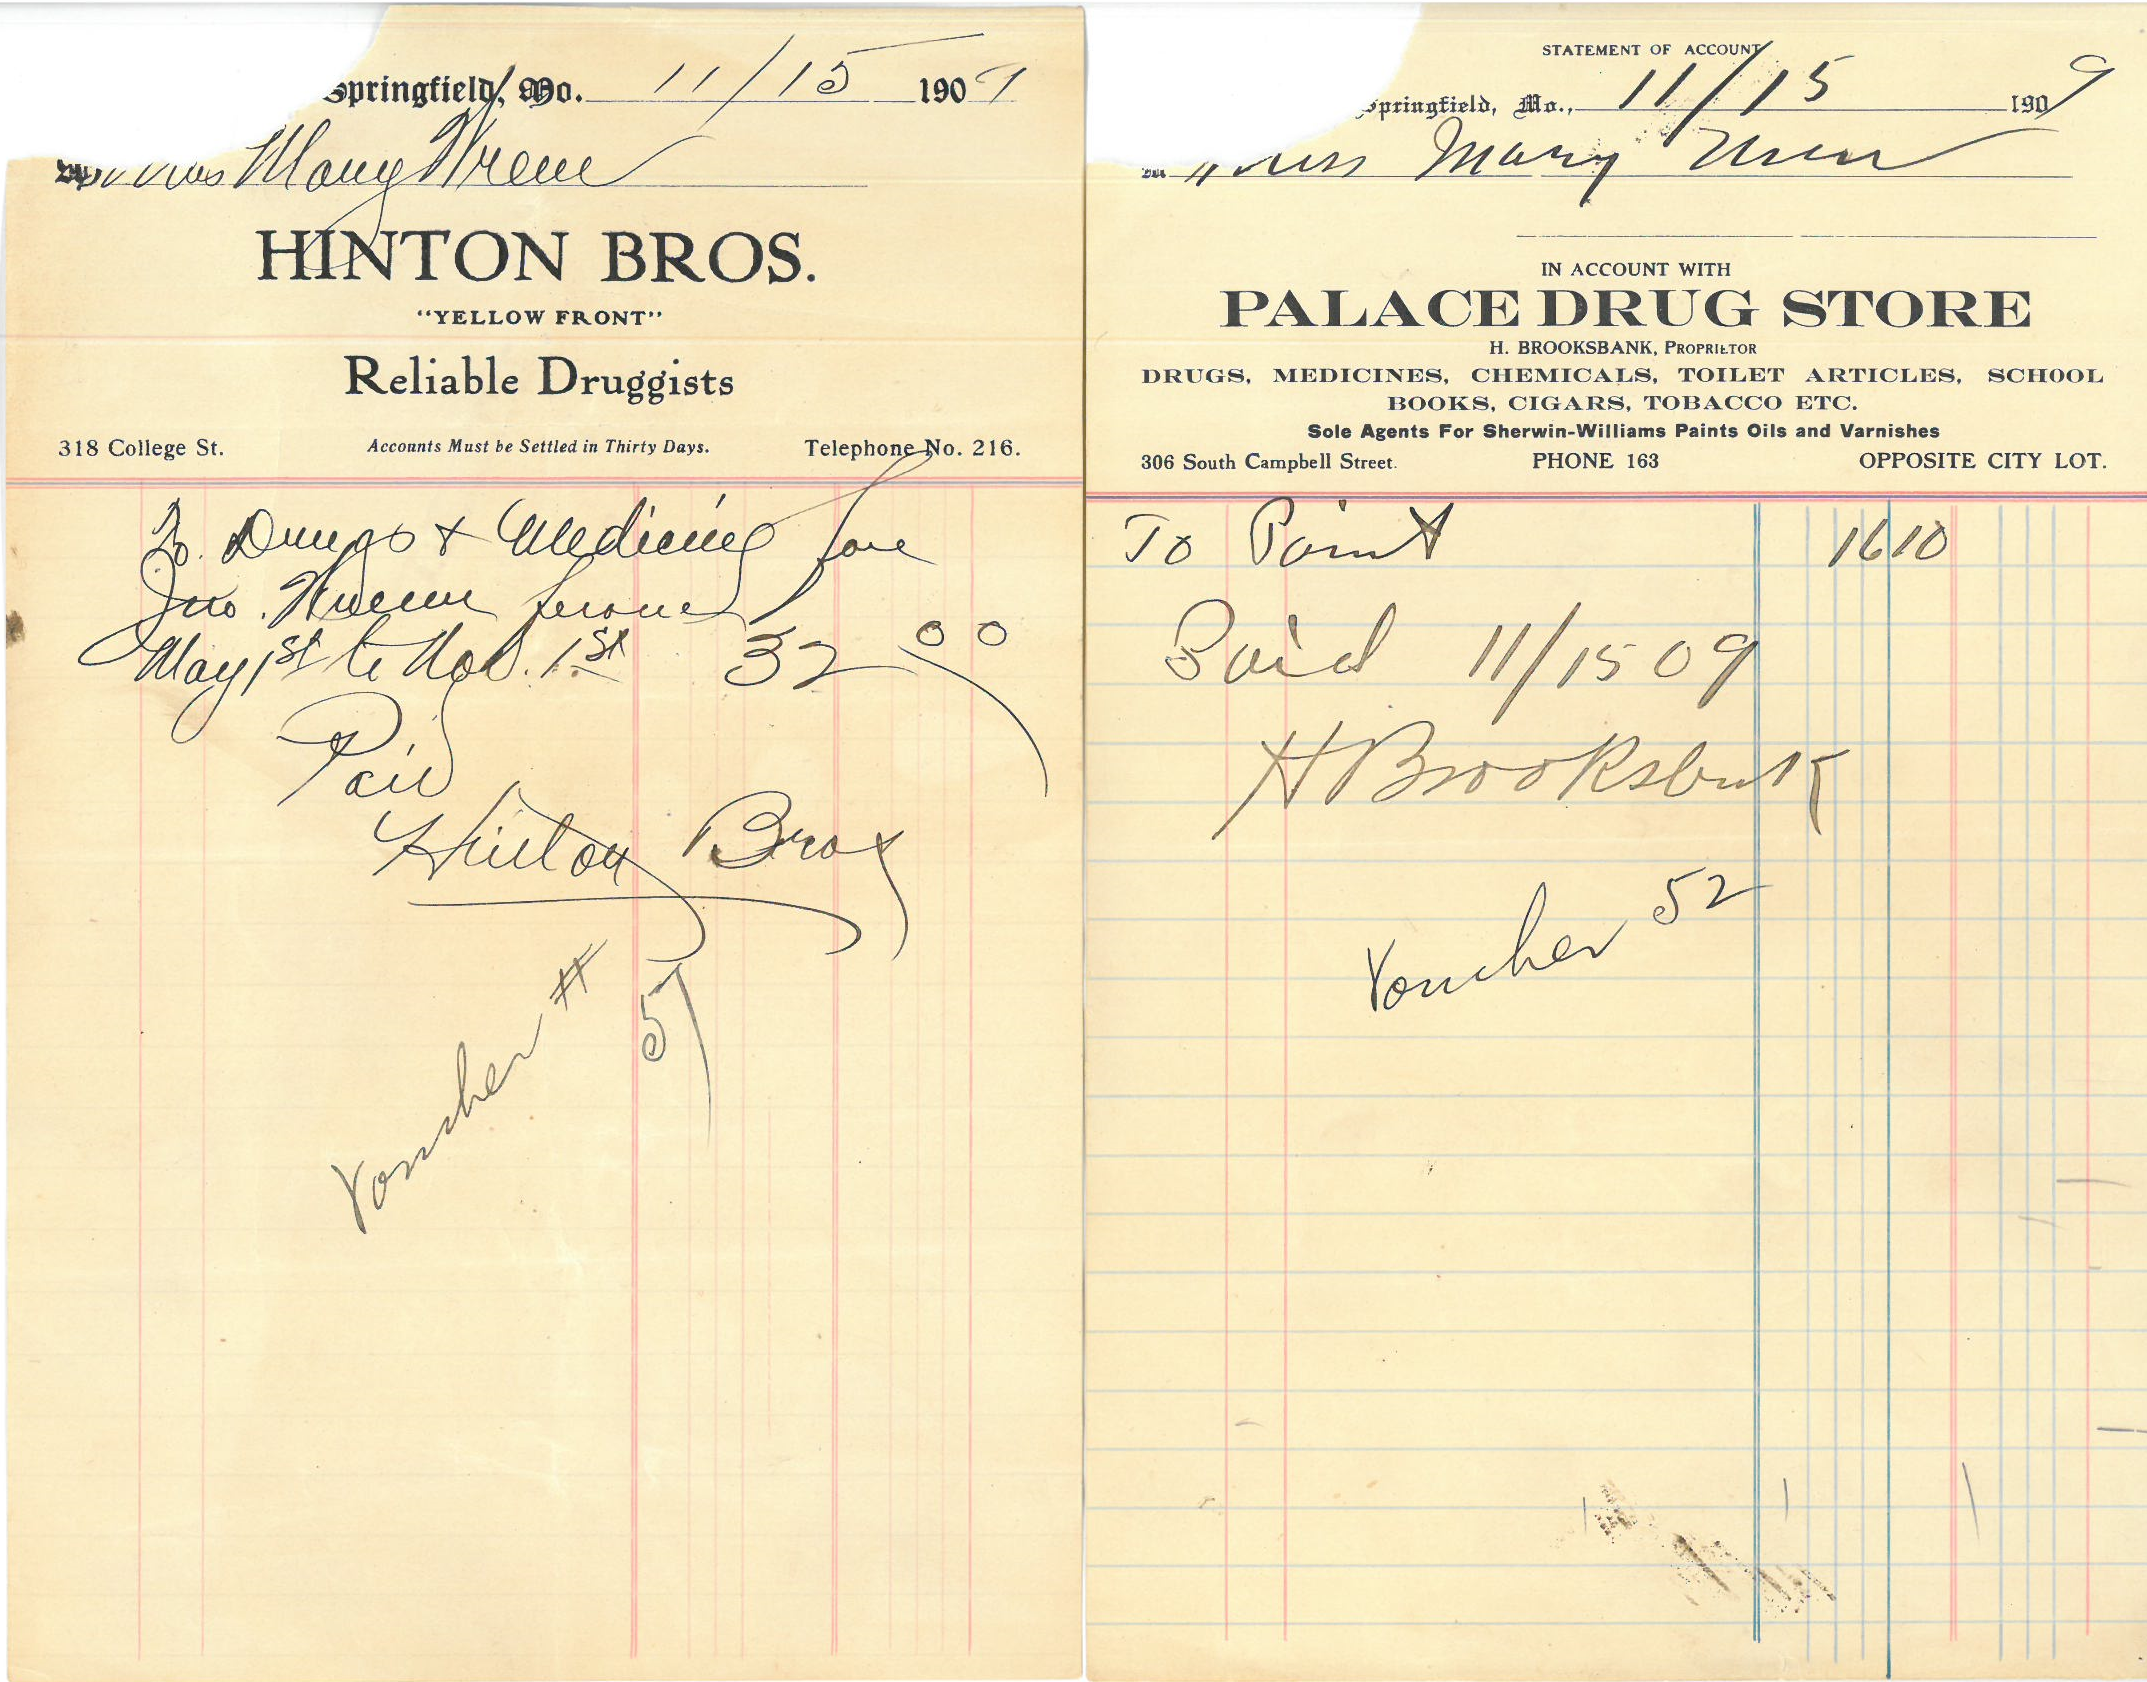 Springfield, Mo. 11/15 1909
Mary Wrenn
HINTON BROS.
"YELLOW FRONT"
Reliable Druggists
318 College St. Accounts Must be Settled in Thirty Days. Telephone No. 216.
To Drugs & Medicine for
Jno. Wrenn from
May 1st to Nov. 1st 32 00
Paid
Hinton Bros
Voucher # 57
STATEMENT OF ACCOUNT
Springfield, Mo., 11/15 1909
Mary Wrenn
IN ACCOUNT WITH
PALACE DRUG STORE
H. BROOKSBANK, PROPRIETOR
DRUGS, MEDICINES, CHEMICALS, TOILET ARTICLES, SCHOOL
BOOKS, CIGARS, TOBACCO ETC.
Sole Agents For Sherwin-Williams Paints Oils and Varnishes
306 South Campbell Street. PHONE 163 OPPOSITE CITY LOT.
To Paint 16 10
Paid 11/15 09
H Brooksbank
Voucher 52